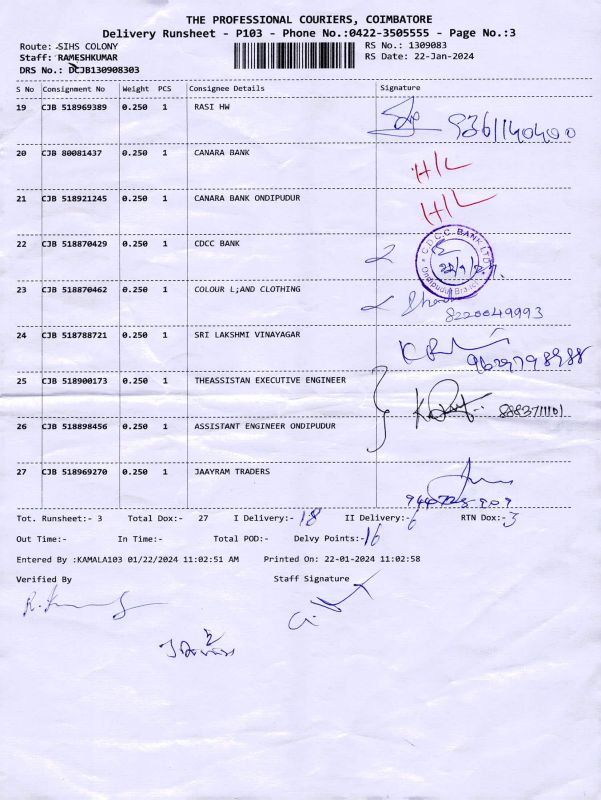 THE PROFESSIONAL COURIERS, COIMBATORE
Delivery Runsheet - P103 - Phone No.:0422-3505555 - Page No.:3
Route: SIHS COLONY RS No.: 1309083
Staff: RAMESHKUMAR RS Date: 22-Jan-2024
DRS No.: DCJB130908303
S No Consignment No Weight PCS Consignee Details Signature
19 CJB 518969389 0.250 1 RASI HW 9361140400
20 CJB 80081437 0.250 1 CANARA BANK H/L
21 CJB 518921245 0.250 1 CANARA BANK ONDIPUDUR H/L
22 CJB 518870429 0.250 1 CDCC BANK C.D.C.C. BANK LTD Ondipudur Branch
23 CJB 518870462 0.250 1 COLOUR L;AND CLOTHING 8220049993
24 CJB 518788721 0.250 1 SRI LAKSHMI VINAYAGAR
25 CJB 518900173 0.250 1 THEASSISTAN EXECUTIVE ENGINEER
26 CJB 518898456 0.250 1 ASSISTANT ENGINEER ONDIPUDUR
27 CJB 518969270 0.250 1 JAAYRAM TRADERS
Tot. Runsheet:- 3 Total Dox:- 27 I Delivery:- 18 II Delivery:- 6 RTN Dox:- 3
Out Time:- In Time:- Total POD:- Delvy Points:- 16
Entered By :KAMALA103 01/22/2024 11:02:51 AM Printed On: 22-01-2024 11:02:58
Verified By Staff Signature